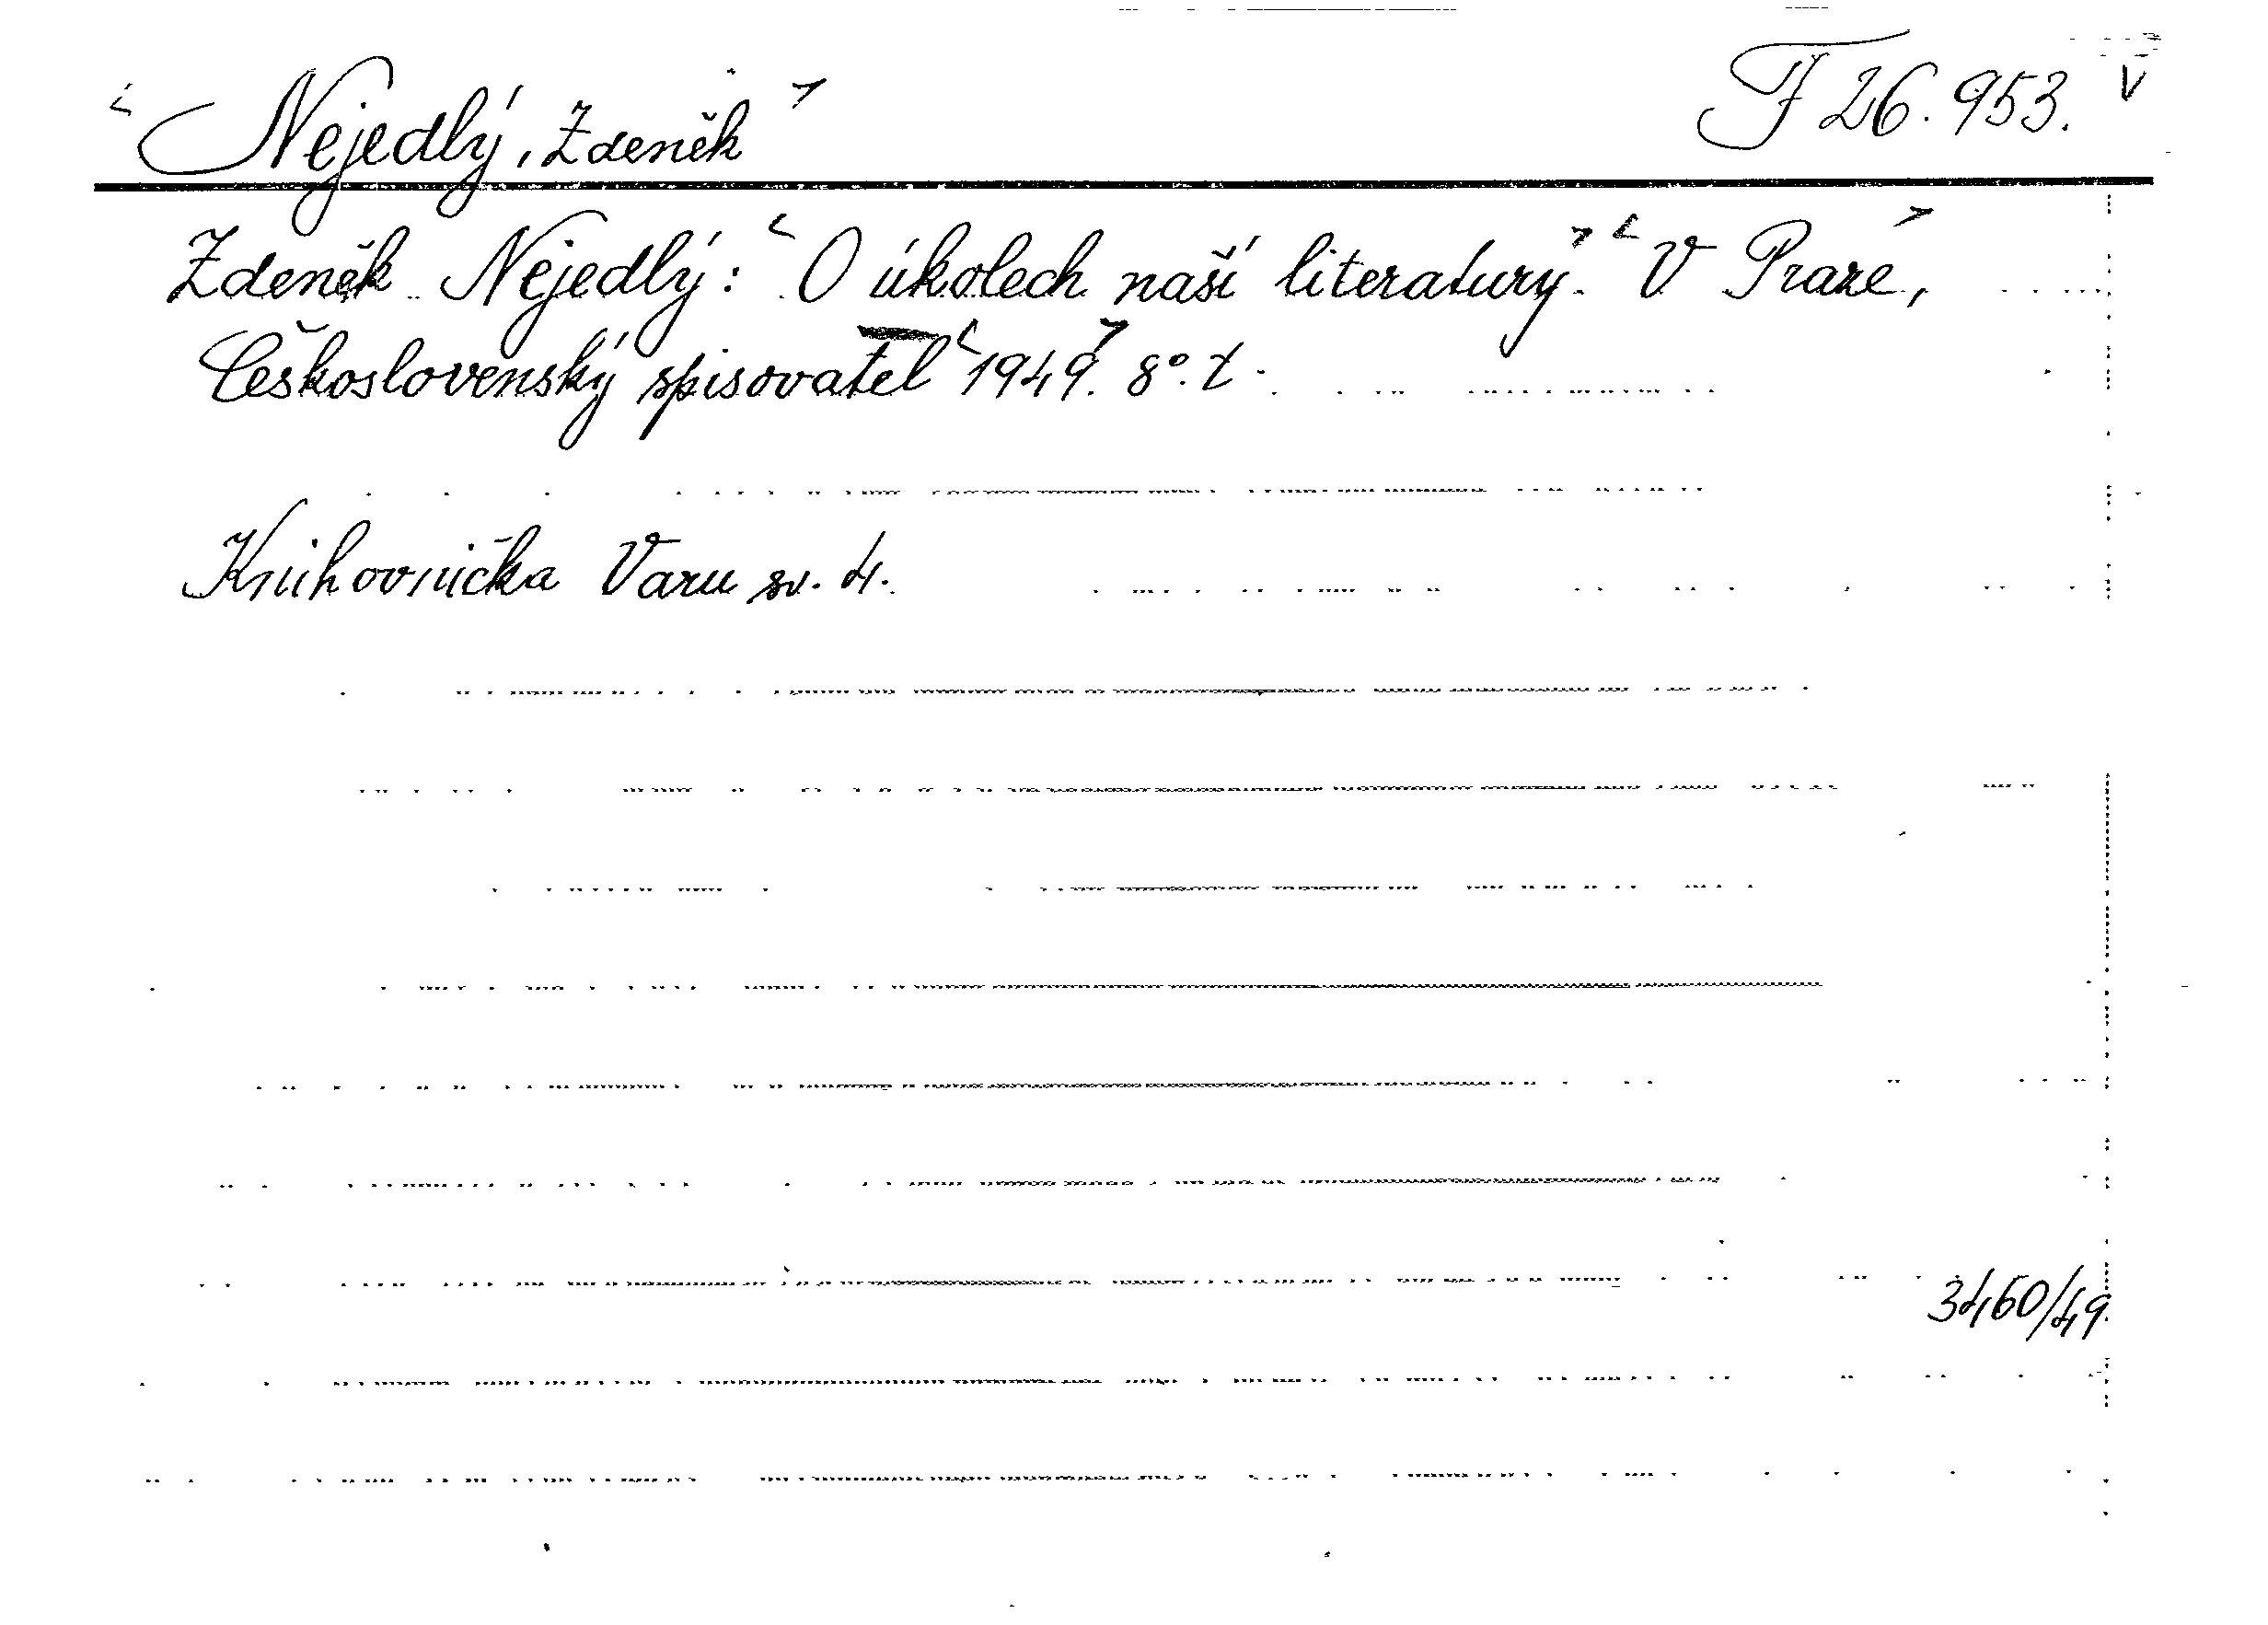 Nejedlý, Zdeněk F 26.953. V
Zdeněk Nejedlý: O úkolech naší literatury. V Praze,
Československý spisovatel 1949. 8°. t.
Knihovnička Varu sv. 4.
3460/49.